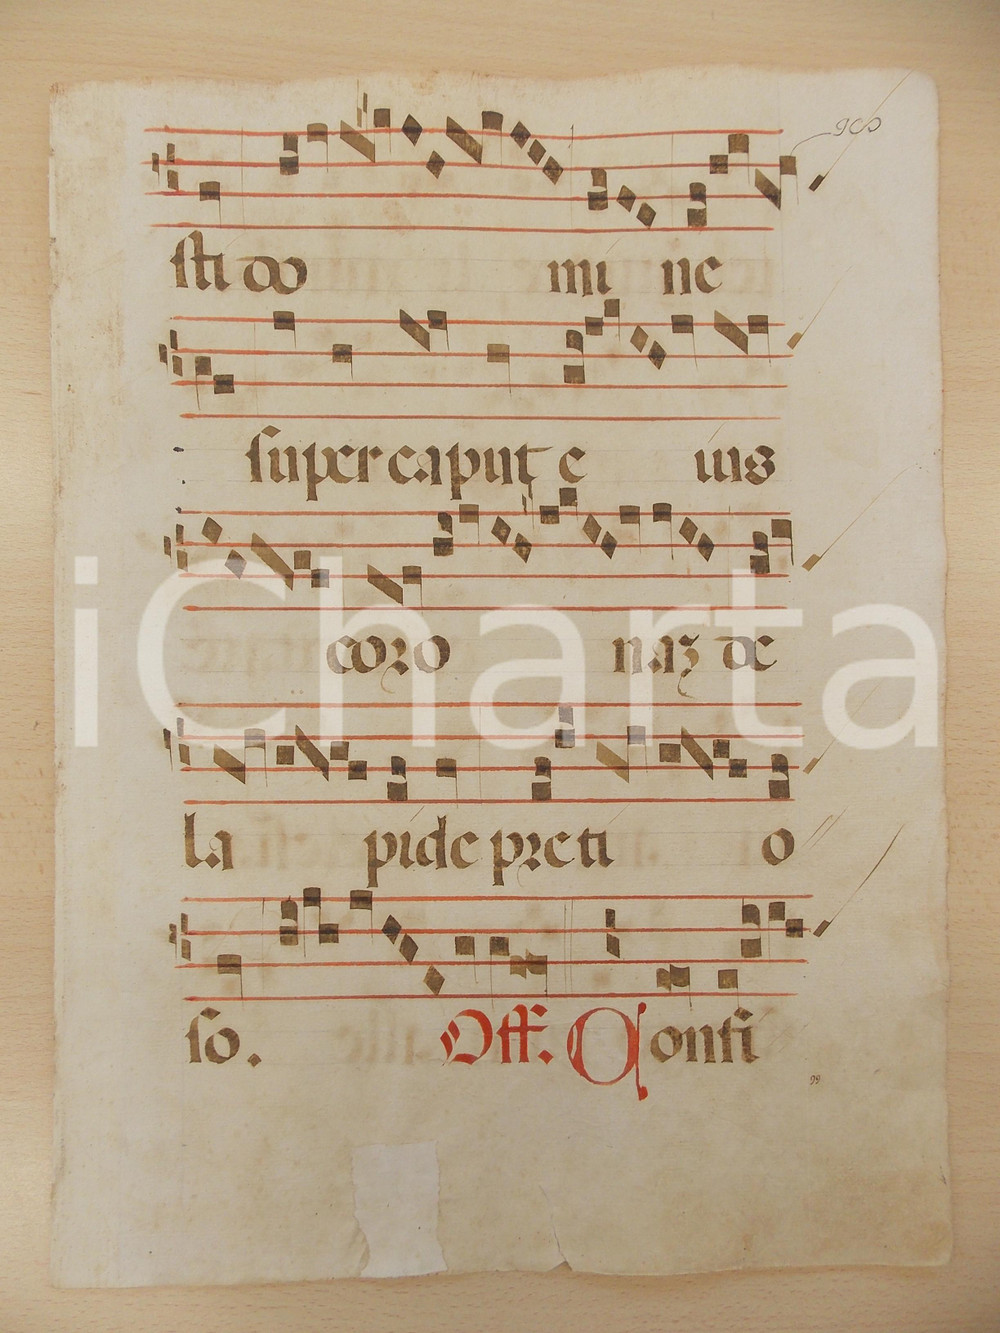 sti do mi ne
super caput e ius
coro naz de
la pide preti o
so. Off. Confi
99
iCharta